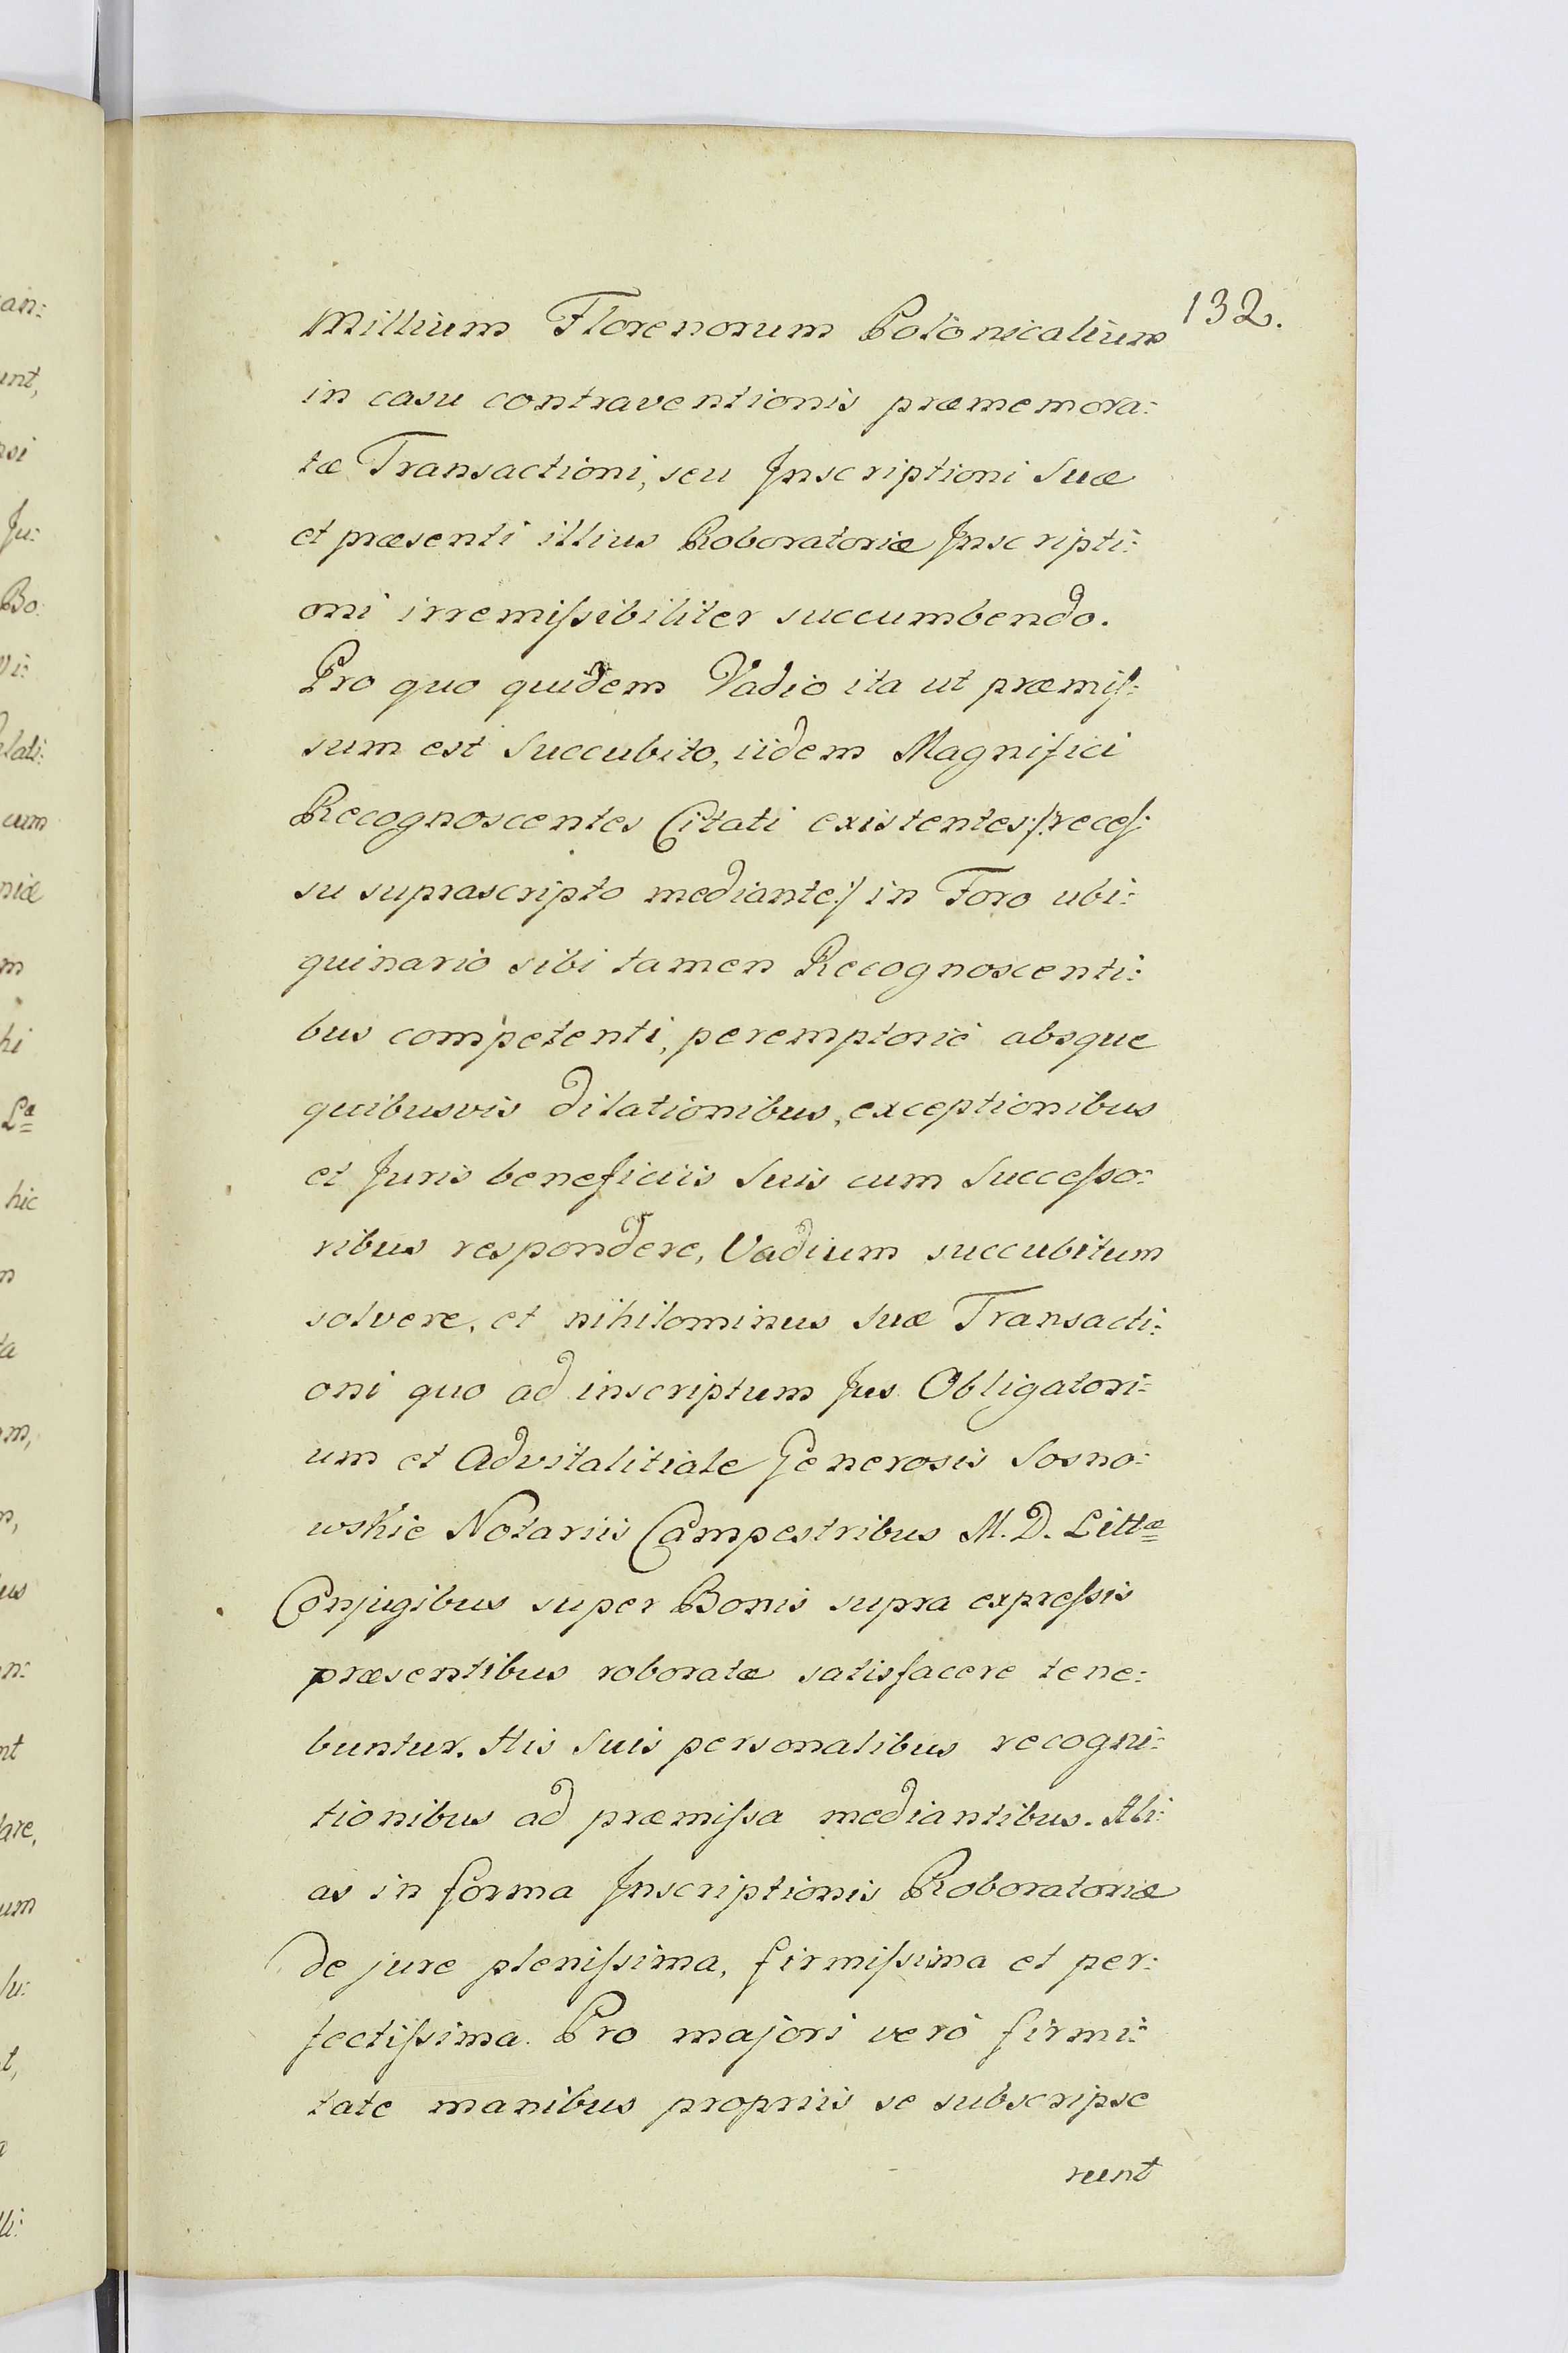 132.
Millium Florenorum Polonicalium
in casu contraventionis præmemora:
tæ Transactioni, seu Inscriptioni Suæ
et præsenti illius Roboratoriæ Inscripti:
oni irremiſsibiliter succumbendo.
Pro quo quidem Vadio ita ut præmiſ:
sum est Succubito, iidem Magnifici
Recognoscentes Citati existentes /: receſ:
su suprascripto mediante :/ in Foro ubi:
quinario sibi tamen Recognoscenti:
bus competenti, peremptorié absque
quibusvis dilationibus, exceptionibus
et Juris beneficiis Suis cum Succeſso:
ribus respondere, Vadium succubitum
solvere, et nihilominus Suæ Transacti:
oni quo ad inscriptum Jus Obligatori:
um et Advitalitiale Generosis Sosno:
wskie Notariis Campestribus M. D. Littæ
Conjugibus super Bonis supra expreſsis
præsentibus roboratæ satisfacere tene:
buntur. His Suis personalibus recogni:
tionibus ad præmiſsa mediantibus. Ali:
as in forma Inscriptionis Roboratoriæ
de jure pleniſsima, firmiſsima et per:
fectiſsima. Pro majori veró firmi:
tate manibus propriis se subscripse
runt
an:
unt,
Ju:
Bo:
vi:
lati:
cum
niæ
m
hi
Læ
hic
ta
m,
n:
nt
dare,
um
t,